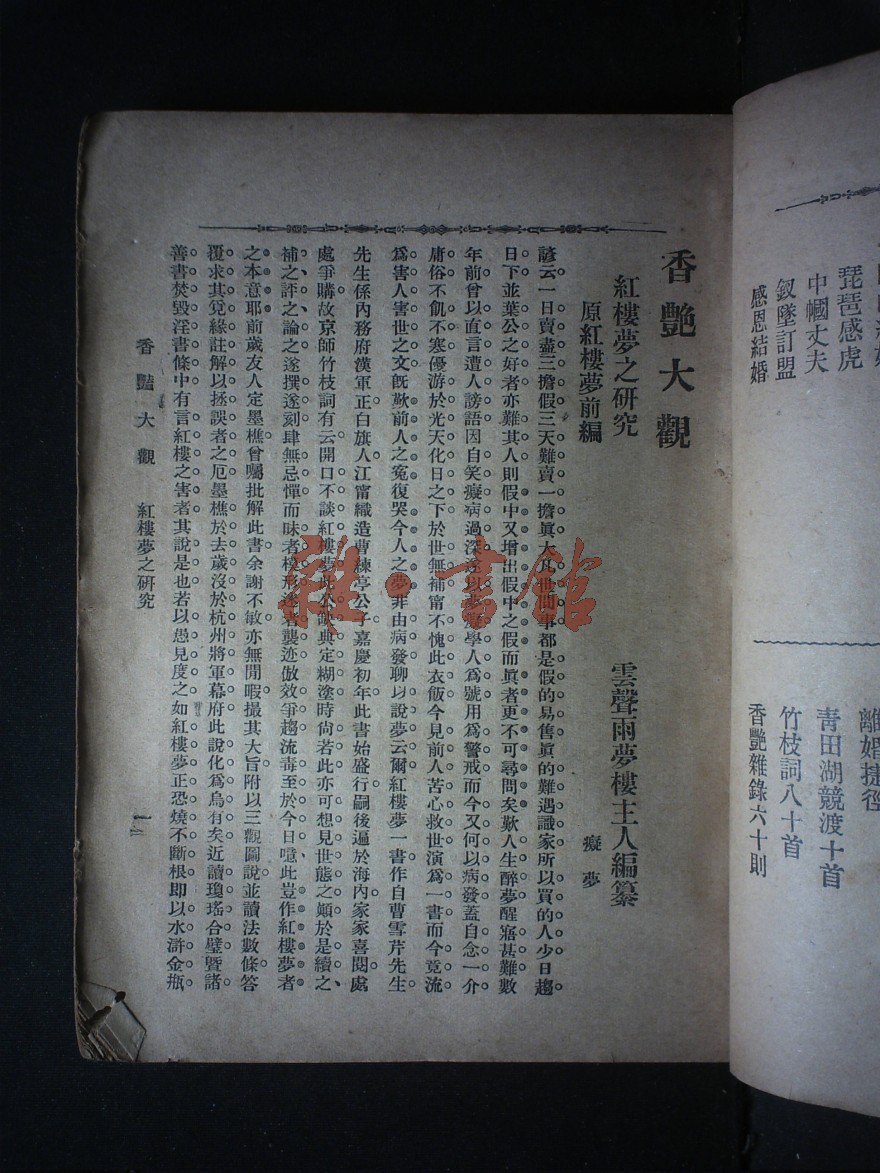 琵琶感虎
巾幗丈夫
釵墜訂盟
感恩結婚
離婚捷徑
青田湖競渡十首
竹枝詞八十首
香艷雜錄六十則
香艷大觀
紅樓夢之研究
雲聲雨夢樓主人編纂
原紅樓夢前編
癡夢
諺云一日賣盡三擔假三天難賣一擔眞大凡世間事都是假的易售眞的難遇識家所以買的人少日趨
日下並葉公之好者亦難其人則假中又增出假中之假而眞者更不可尋問矣歎人生醉夢醒寤甚難數
年前曾以直言遭人謗語因自笑癡病過深遂以夢癡學人爲號用爲警戒而今又何以病發蓋自念一介
庸俗不飢不寒優游於光天化日之下於世無補甯不愧此衣飯今見前人苦心救世演爲一書而今竟流
爲害人害世之文旣歎前人之冤復哭今人之夢非由病發聊以說夢云爾紅樓夢一書作自曹雪芹先生
先生係內務府漢軍正白旗人江甯織造曹楝亭公子嘉慶初年此書始盛行嗣後遍於海內家家喜閱處
處爭購故京師竹枝詞有云開口不談紅樓夢此公缺典定糊塗時尙若此亦可想見世態之顚於是續之、
補之、評之論之遂撰遂刻肆無忌憚而昧者模形迷者襲迹倣效爭趨流毒至於今日噫此豈作紅樓夢者
之本意耶前歲友人定墨樵曾囑批解此書余謝不敏亦無閒暇撮其大旨附以三觀圖說並讀法數條答
覆求其寃緣註解以拯誤者之厄墨樵於去歲沒於杭州將軍幕府此說化爲烏有矣近讀瓊瑤合璧暨諸
善書焚毀淫書條中有言紅樓之害者其說是也若以愚見度之如紅樓夢正恐燒不斷根即以水滸金瓶
香豔大觀 紅樓夢之研究
一
雜·書館